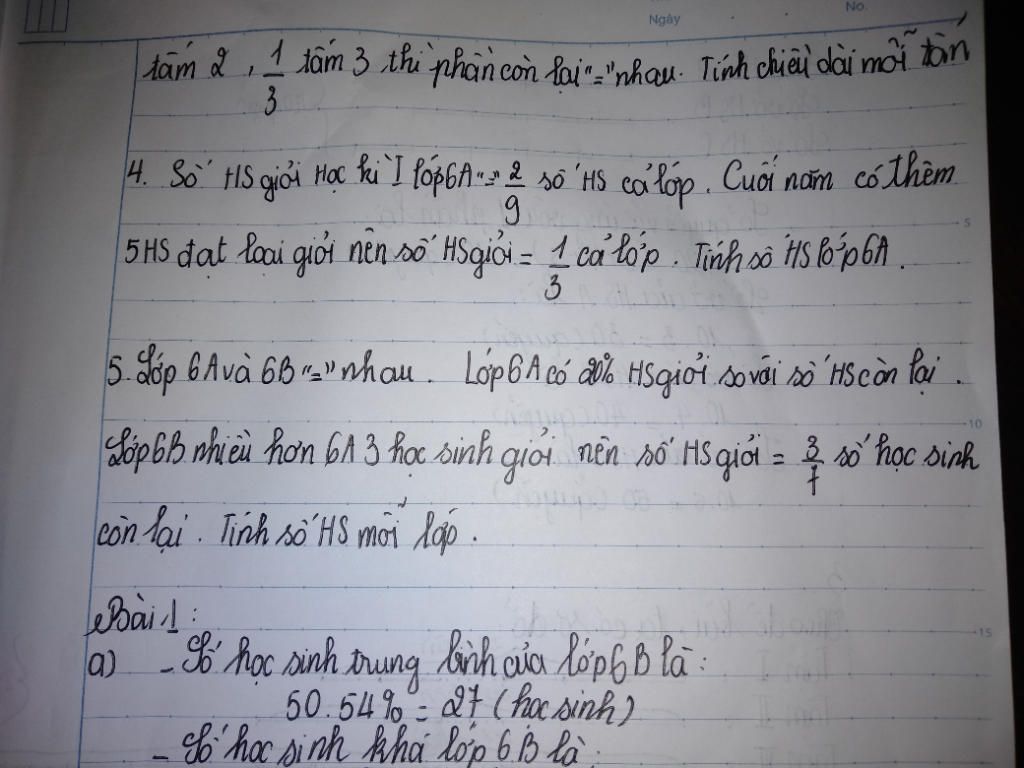 Ngày
No.
tấm 2, 1/3 tấm 3 thì phần còn lại "=" nhau. Tính chiều dài mỗi tấm
4. Số HS giỏi Học kì I lớp 6A "=" 2/9 số HS cả lớp. Cuối năm có thêm
5 HS đạt loại giỏi nên số HS giỏi = 1/3 cả lớp. Tính số HS lớp 6A.
5. Lớp 6A và 6B "=" nhau. Lớp 6A có 20% HS giỏi so với số HS còn lại.
Lớp 6B nhiều hơn 6A 3 học sinh giỏi nên số HS giỏi = 3/7 số học sinh
còn lại. Tính số HS mỗi lớp.
Bài 1:
a) - Số học sinh trung bình của lớp 6B là:
50.54% = 27 (học sinh)
- Số học sinh khá lớp 6B là:
5
10
15